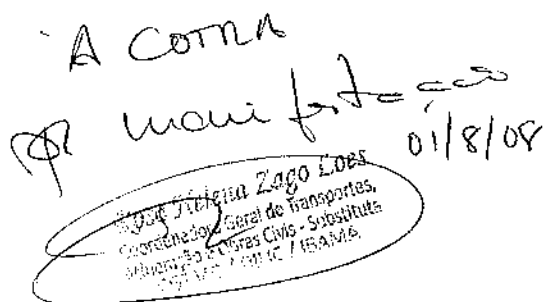 À COTRA
p/ manifestação
01/8/08
Rosa Helena Zago Loes
Coordenadora Geral de Transportes,
Mineração e Obras Civis - Substituta
/ IBAMA